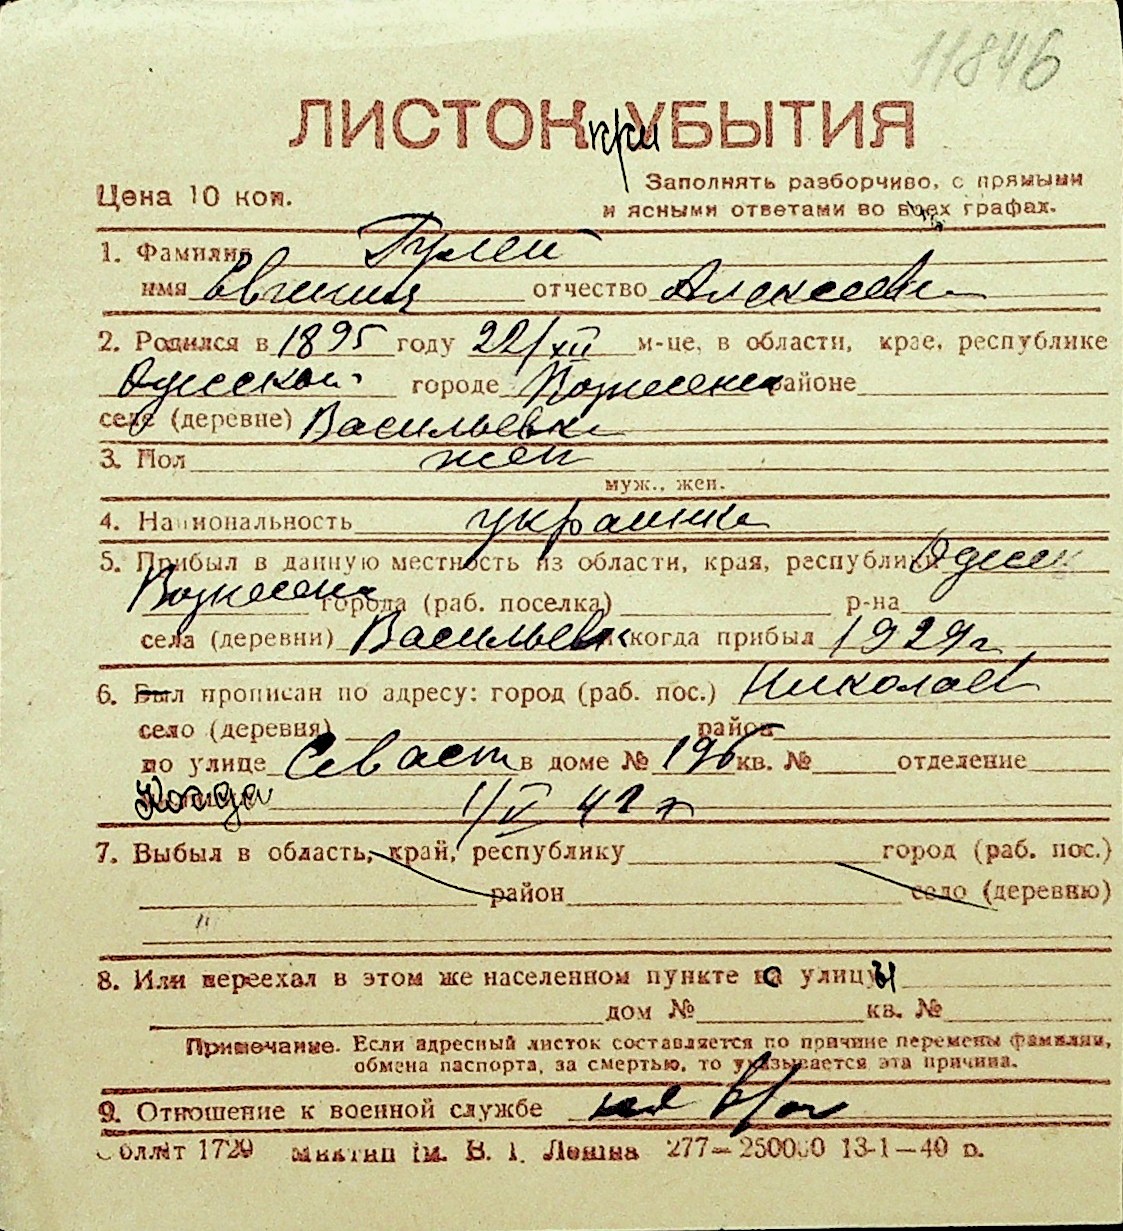 11846
ЛИСТОК при УБЫТИЯ
Цена 10 коп.
Заполнять разборчиво, с прямыми
и ясными ответами во всех графах.
1. Фамилия Гулей
имя Евгения отчество Алексеевна
2. Родился в 1895 году 22/XII м-це, в области, крае, республике
Одесской городе Вознесенск районе
селе (деревне) Васильевка
3. Пол жен
муж., жен.
4. Национальность украинка
5. Прибыл в данную местность из области, края, республики Одесск
Вознесенск города (раб. поселка) р-на
села (деревни) Васильевк когда прибыл 1929 г
6. Был прописан по адресу: город (раб. пос.) Николаев
село (деревня) район
по улице Севаст в доме № 196 кв. № отделение
Когда 1/V 42 г
7. Выбыл в область, край, республику город (раб. пос.)
район село (деревню)
8. Или переехал в этом же населенном пункте со улицы
дом № кв. №
Примечание. Если адресный листок составляется по причине перемены фамилии,
обмена паспорта, за смертью, то указывается эта причина.
9. Отношение к военной службе в/об
Обллiт 1729 им. В. I. Ленiна 277—250000 13-1—40 р.